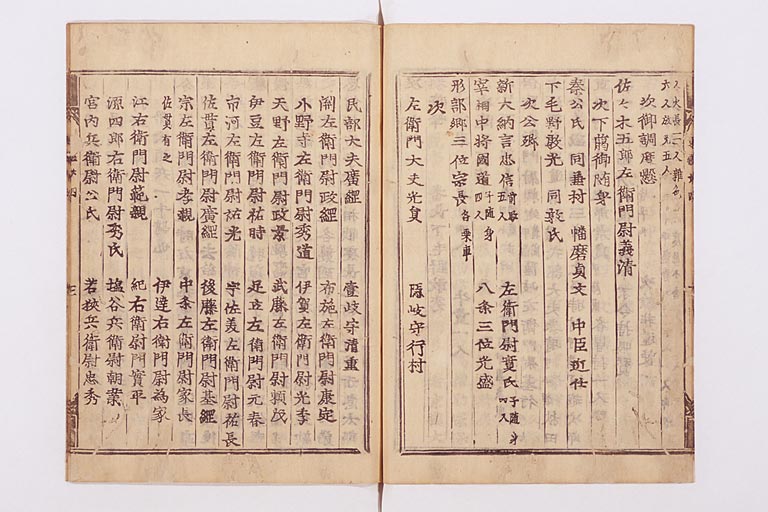 六人
次御調度懸
佐々木五郎左衛門尉義清
次下﨟御随身
秦公氏 同兼村 播磨貞文 中臣近任
下毛野敦光 同敦氏
次公卿
新大納言忠信 左衛門尉實氏
宰相中将國通 八条三位光盛
刑部卿三位宗長 各乗車
次
左衛門大夫光員 隠岐守行村
民部大夫廣経 壹岐守清重
関左衛門尉政綱 布施左衛門尉康定
小野寺左衛門尉秀道 伊賀左衛門尉光季
天野左衛門尉政景 武藤左衛門尉頼茂
伊豆左衛門尉祐時 足立左衛門尉元春
市河左衛門尉祐光 宇佐美左衛門尉祐長
佐貫左衛門尉廣綱 後藤左衛門尉基綱
宗左衛門尉孝親 中条左衛門尉家長
佐貫 伊達右衛門尉為家
江右衛門尉範親 紀右衛門尉實平
源四郎右衛門尉季氏 塩谷兵衛尉朝業
宮内兵衛尉公氏 若狭兵衛尉忠秀